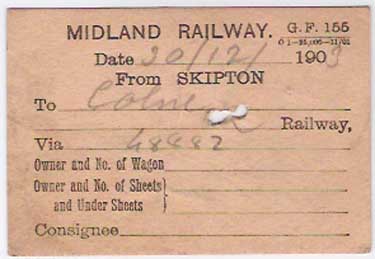 MIDLAND RAILWAY. G. F. 155
Date 30/12/ 1903
From SKIPTON
To Colne
Railway,
Via 48882
Owner and No. of Wagon
Owner and No. of Sheets
and Under Sheets
Consignee